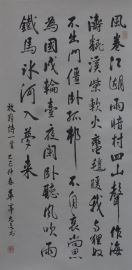 風卷江湖雨暗村四山聲作海
濤翻溪柴軟火蠻氈暖我與狸奴
不出門僵卧孤邨不自哀尚思
為國戍輪臺夜闌卧聽風吹雨
鐵馬冰河入夢來
放翁詩二首